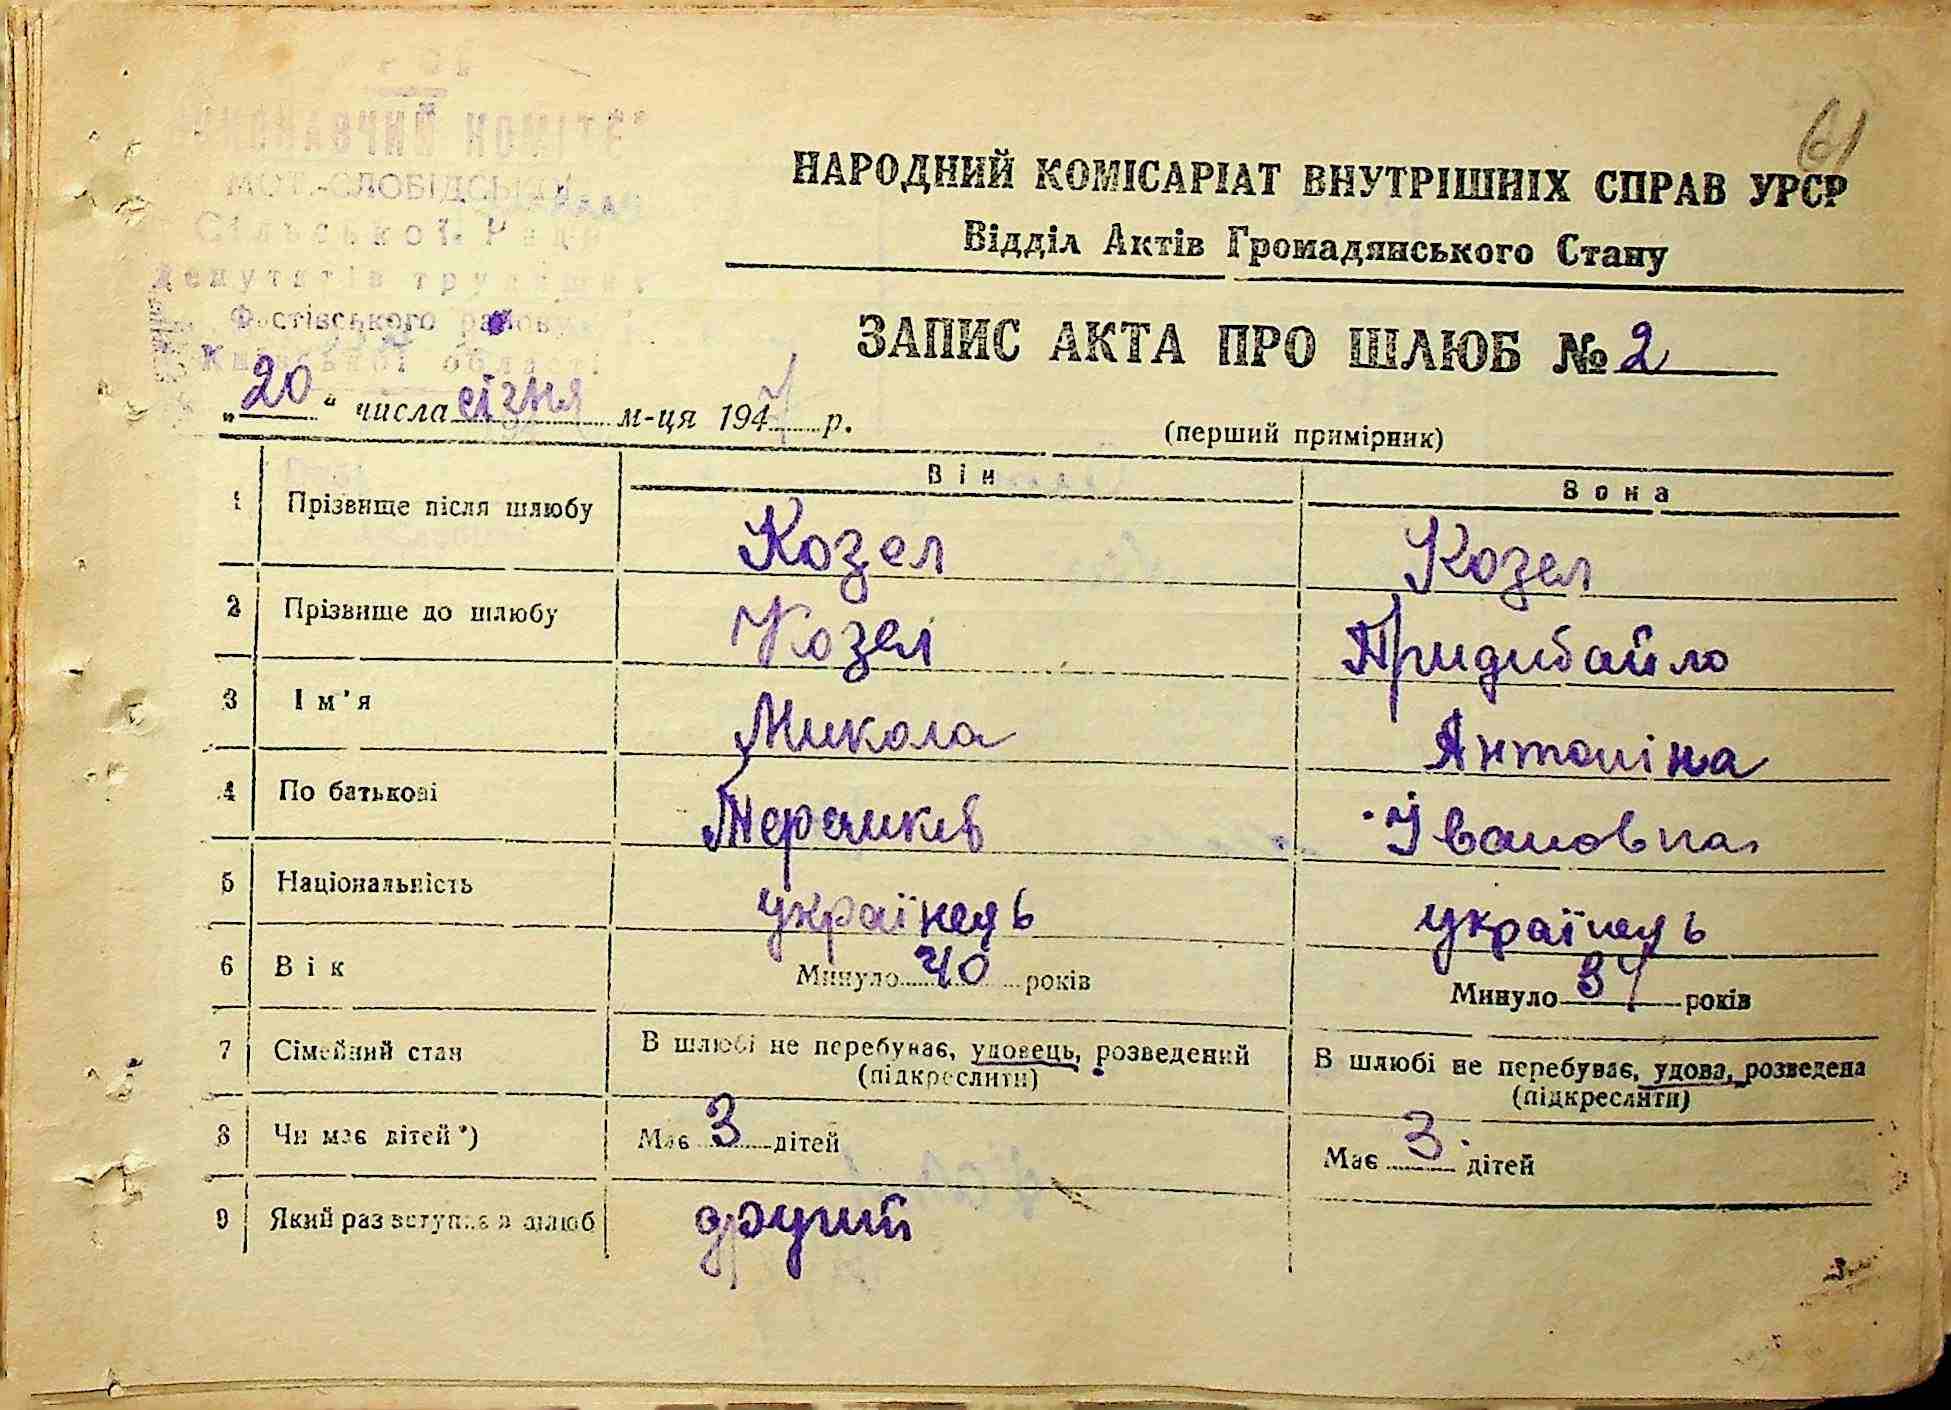 61
НАРОДНИЙ КОМІСАРІАТ ВНУТРІШНІХ СПРАВ УРСР
Відділ Актів Громадянського Стану
МОТ.-СЛОБІДСЬКА
Сільської Ради
Депутатів трудящих
Фастівського району
Київської області
ЗАПИС АКТА ПРО ШЛЮБ № 2
„20“ числа січня м-ця 1947 р.
(перший примірник)
Він Вона
1 Прізвище після шлюбу Козел Козел
2 Прізвище до шлюбу Козел Придибайло
3 Ім'я Микола Антоніна
4 По батькові Івановна
5 Національність українець українець
6 Вік Минуло 40 років Минуло 37 років
7 Сімейний стан В шлюбі не перебуває, удовець, розведений (підкреслити) В шлюбі не перебуває, удова, розведена (підкреслити)
8 Чи має дітей *) Має 3 дітей Має 3 дітей
9 Який раз вступає в шлюб другий